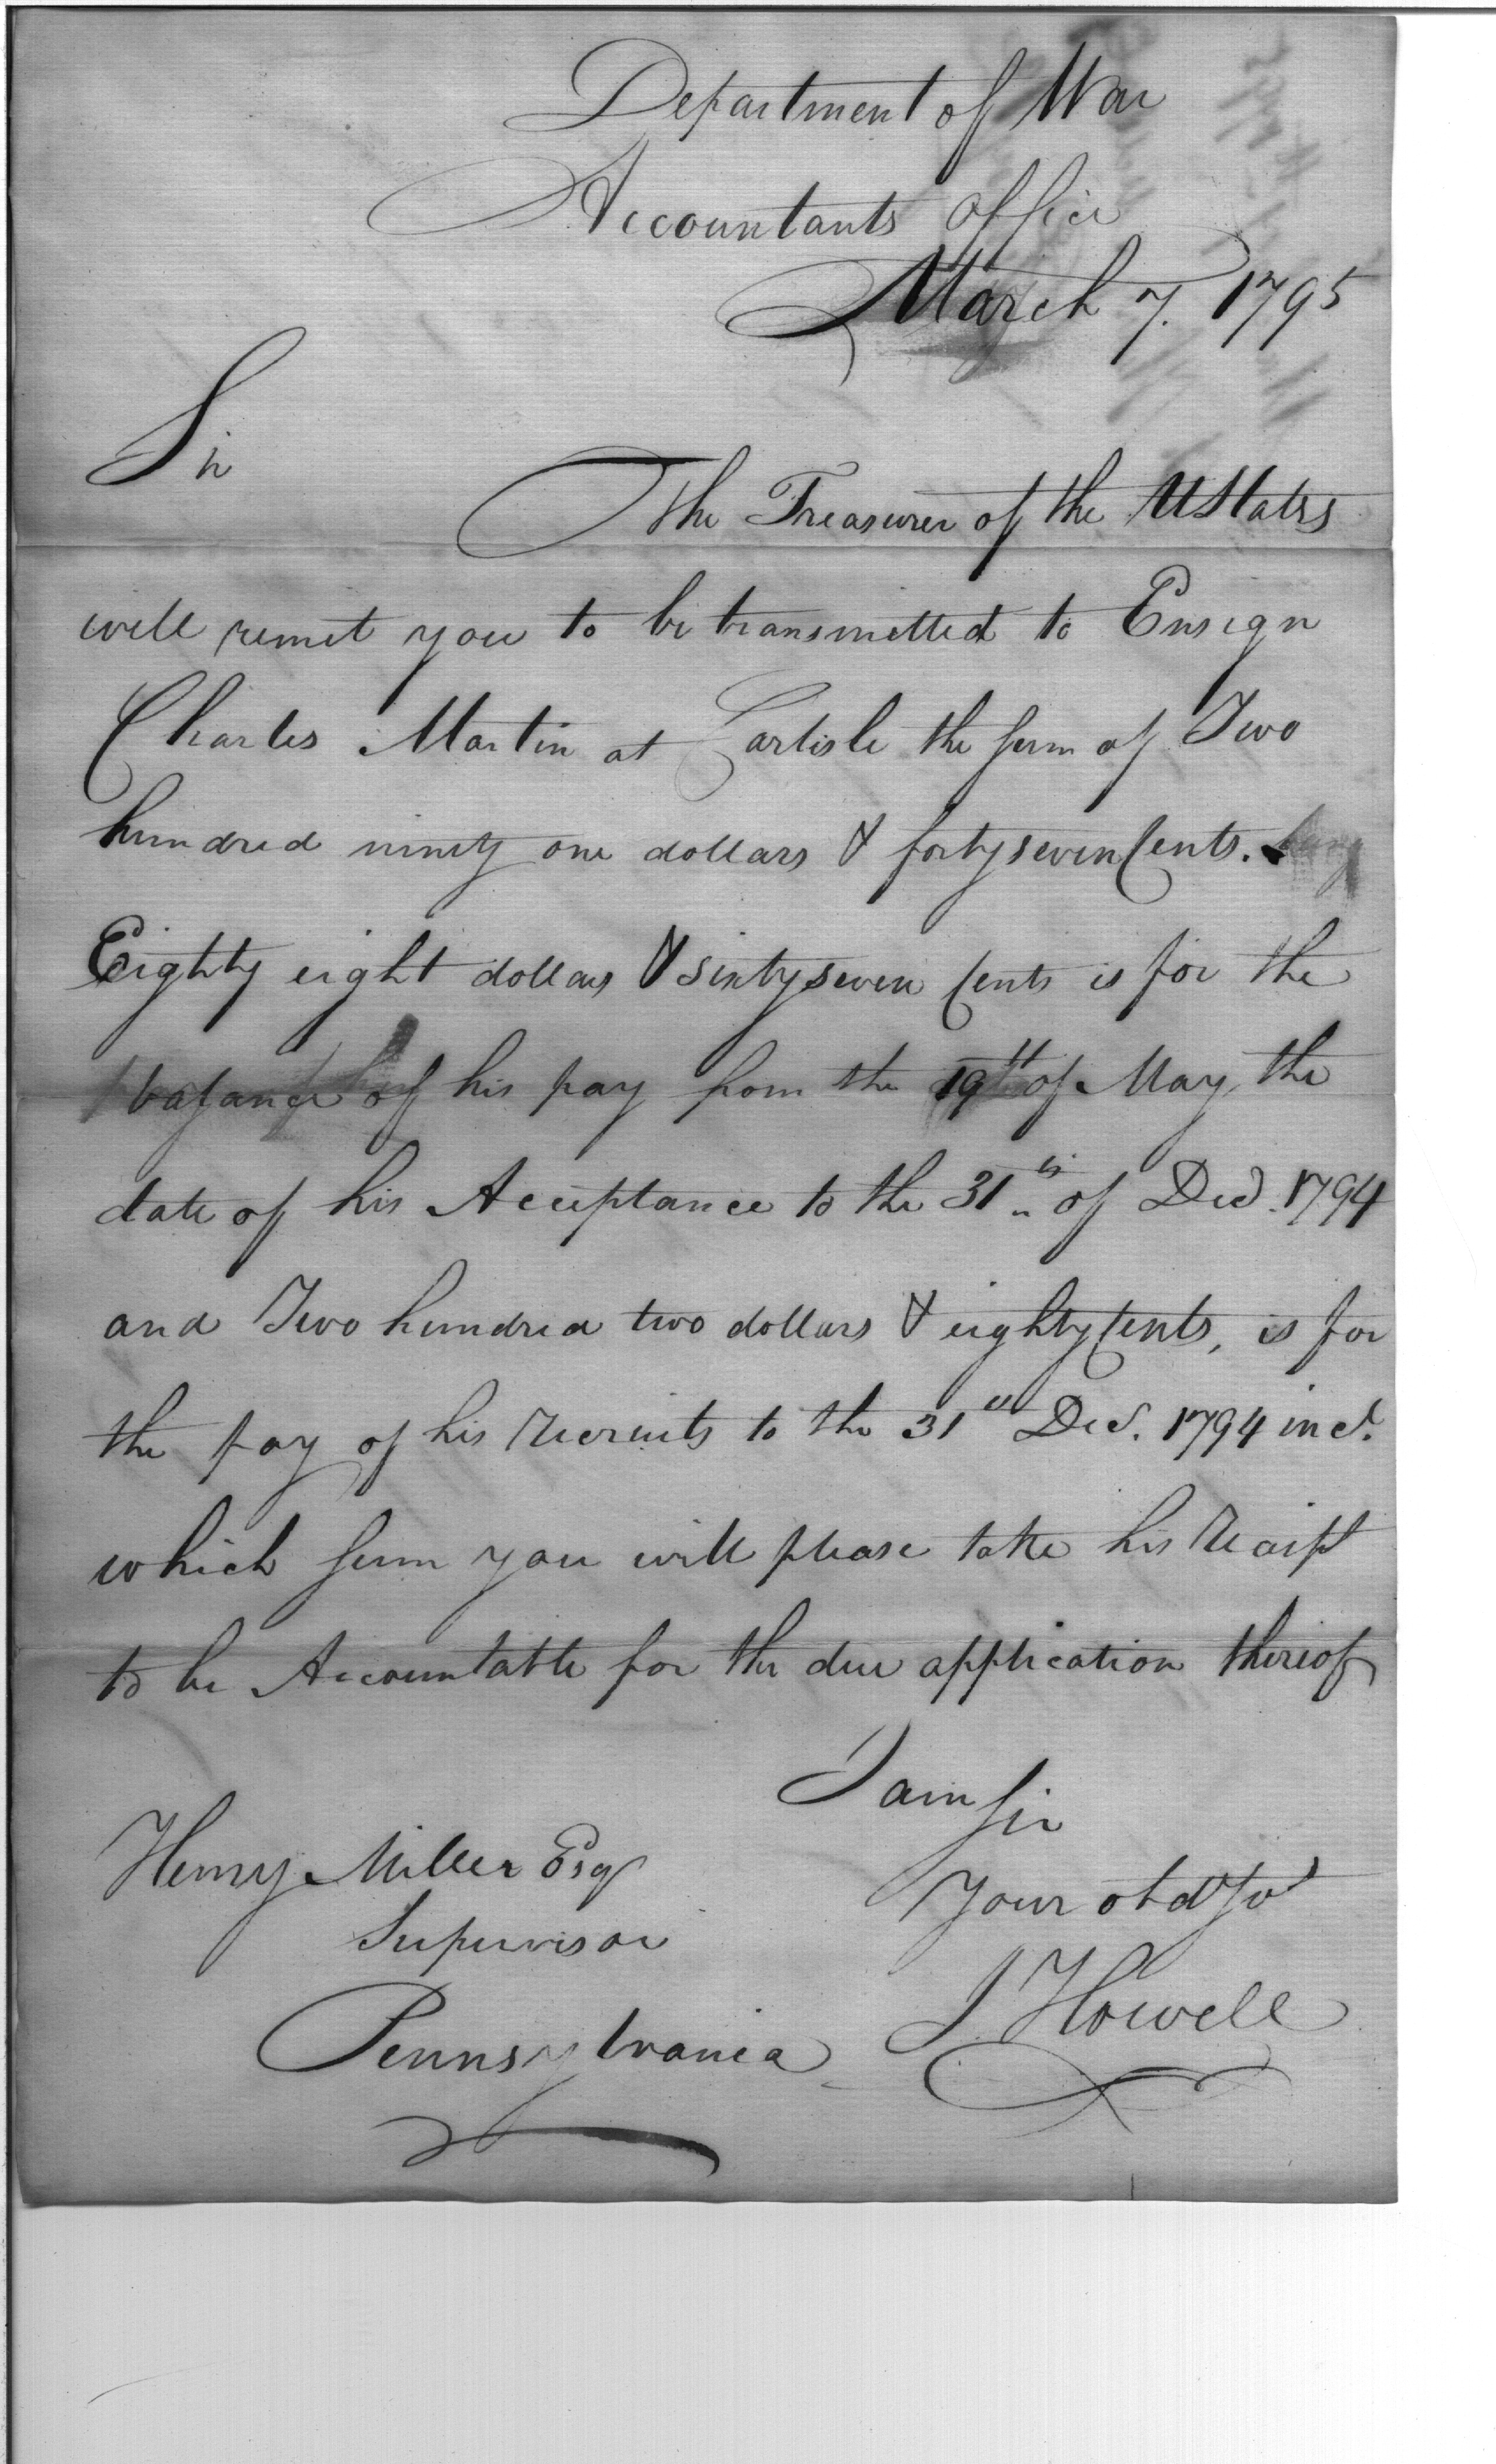 Department of War
Accountants office
March 7. 1795
Sir
The Treasurer of the UStates
will remit you to be transmitted to Ensign
Charles Martin at Carlisle the sum of Two
hundred ninety one dollars & forty seven Cents.
Eighty eight dollars & sixty seven Cents is for the
balance of his pay from the 19th of May, the
date of his Acceptance to the 31st of Decr. 1794
and Two hundred two dollars & eighty Cents, is for
the pay of his recruits to the 31st Decr. 1794 incl.
which sum you will please take his receipt
to be Accountable for the due application thereof
I am Sir
Your obdt Svt
J Howell
Henry Miller Esq
Supervisor
Pennsylvania